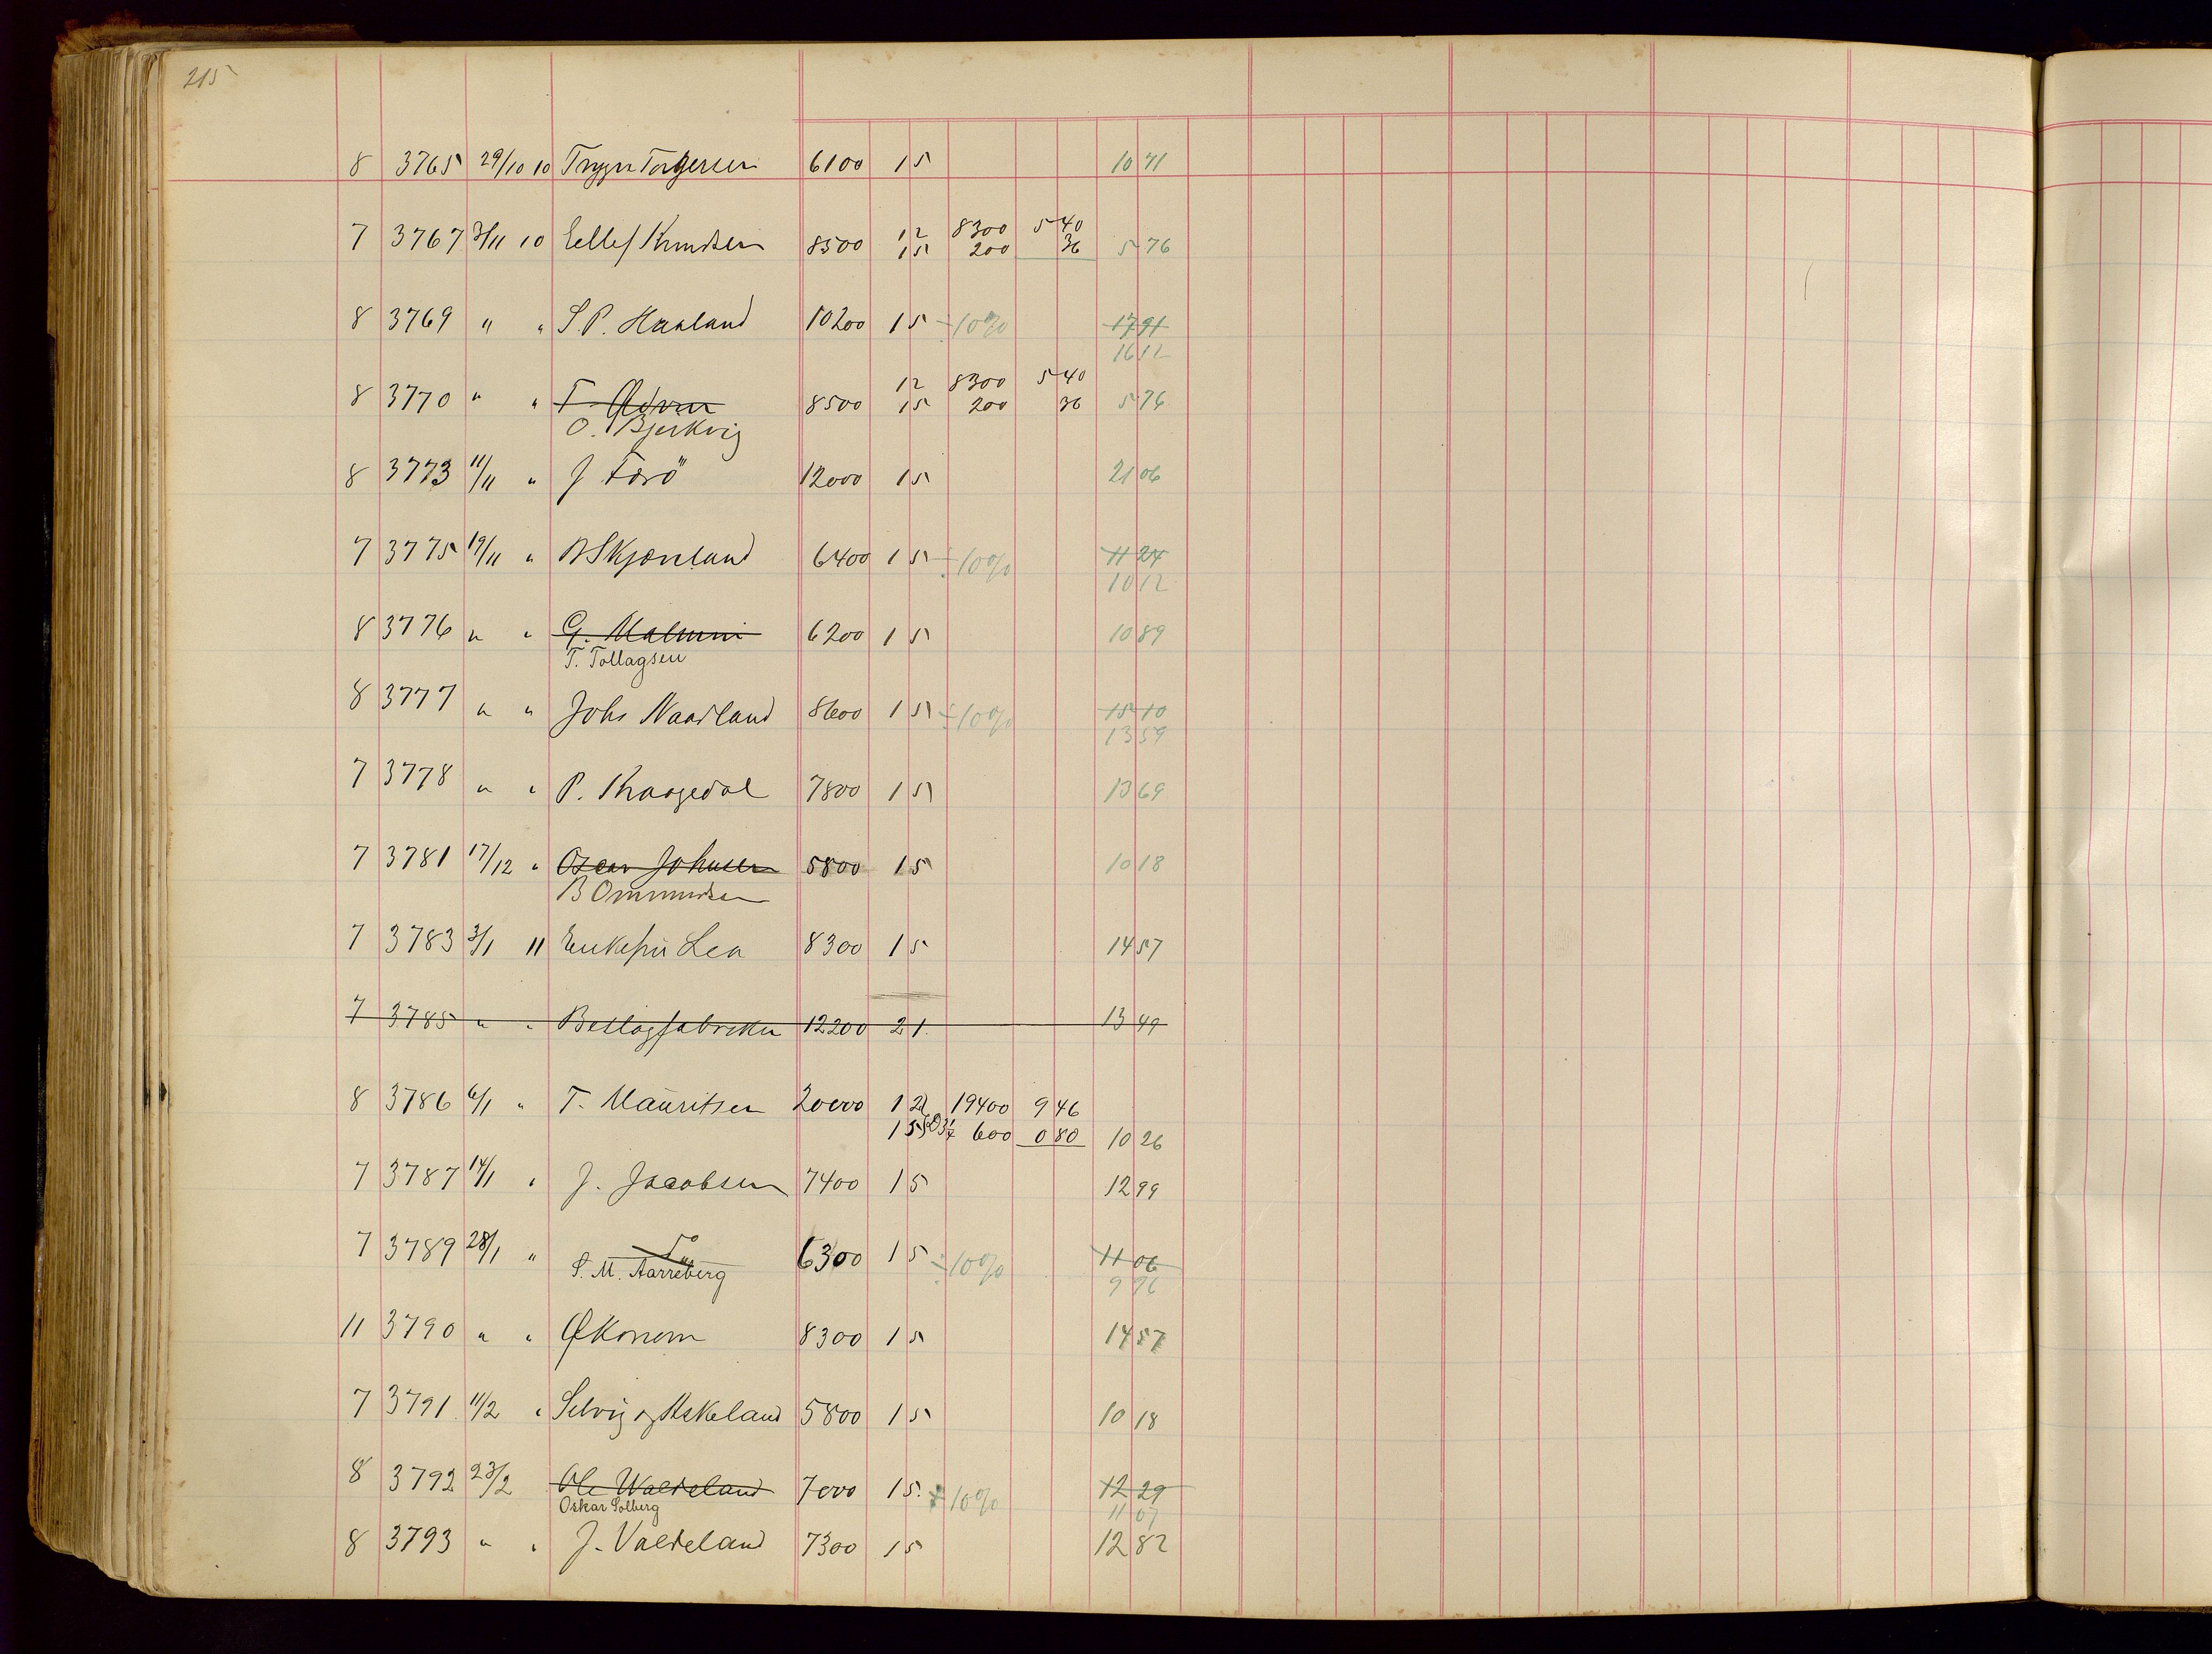 215
8 3765 29/10 10 Trygve Torgersen 6100 15 10 71
12 8300 5 40
7 3767 3/11 10 Ellef Knudsen 8500 15 200 36 5 76
8 3769 " " S. P. Haaland 10200 15 ÷10% 17 91
16 12
12 8300 5 40
8 3770 " " T. 8500 15 200 36 5 76
O. Bjerkvig
8 3773 11/11 " J Forö 12000 15 21 06
7 3775 19/11 " B Skjoreland 6400 15 ÷10% 11 24
10 12
8 3776 " " G. Malmin 6200 15 10 89
T. Tollagsen
8 3777 " " Johs Naadland 8600 15 ÷10% 15 10
13 59
7 3778 " " P. Kraagedal 7800 15 13 69
7 3781 17/12 " Oscar Johnsen 5800 15 10 18
B Ommundsen
7 3783 3/1 11 Enkefru Lea 8300 15 14 57
7 3785 " " Beslagfabriken 12200 21 13 49
8 3786 6/1 " T. Mauritsen 20000 12 19400 9 46
15 600 0 80 10 26
7 3787 14/1 " J. Jacobsen 7400 15 12 99
7 3789 28/1 " Do 6300 15 ÷10% 11 06
S. M. Aarreberg 9 96
11 3790 " " Økonom 8300 15 14 57
7 3791 11/2 " Selvig og Askeland 5800 15 10 18
8 3792 23/2 Ole Waldeland 7000 15. ÷10% 12 29
Oskar Solberg 11 07
8 3793 " " J. Valdeland 7300 15 12 82